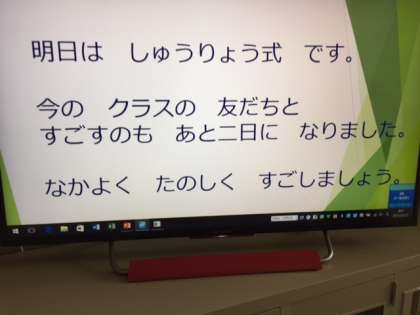 明日は　しゅうりょう式　です。
今の　クラスの　友だちと
すごすのも　あと二日に　なりました。
なかよく　たのしく　すごしましょう。